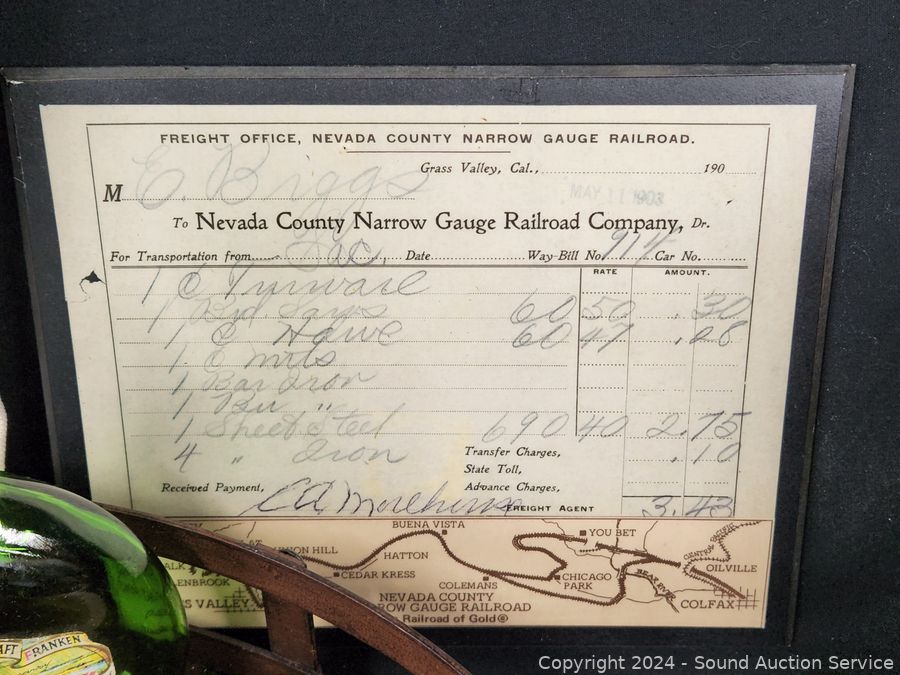 FREIGHT OFFICE, NEVADA COUNTY NARROW GAUGE RAILROAD.
Grass Valley, Cal., 190
MAY 11 1903
M E. Briggs
To Nevada County Narrow Gauge Railroad Company, Dr.
For Transportation from Sac, Date Way-Bill No. 914 Car No.
RATE AMOUNT.
1 C Tinware
1 60 50 .30
1 C Hdwe 60 47 .28
1
1 Bar Iron
1 "
1 Sheet Steel 690 40 2.75
4 " Iron Transfer Charges, .10
State Toll,
Received Payment, Advance Charges,
FREIGHT AGENT 3.43
BUENA VISTA
YOU BET
UNION HILL
HATTON
CENTRAL PACIFIC
OILVILLE
CEDAR KRESS
CHICAGO PARK
BEAR RIVER
COLEMANS
COLFAX
ENBROOK
S VALLEY
NEVADA COUNTY
ROW GAUGE RAILROAD
Railroad of Gold®
AFT FRANKEN
Copyright 2024 - Sound Auction Service